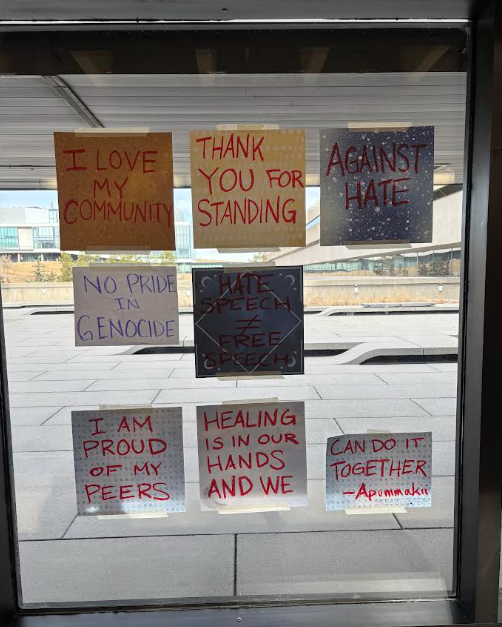 I LOVE
MY
COMMUNITY
THANK
YOU FOR
STANDING
AGAINST
HATE
NO PRIDE
IN
GENOCIDE
HATE
SPEECH
≠
FREE
SPEECH
I AM
PROUD
OF MY
PEERS
HEALING
IS IN OUR
HANDS
AND WE
CAN DO IT
TOGETHER
-Apummakii